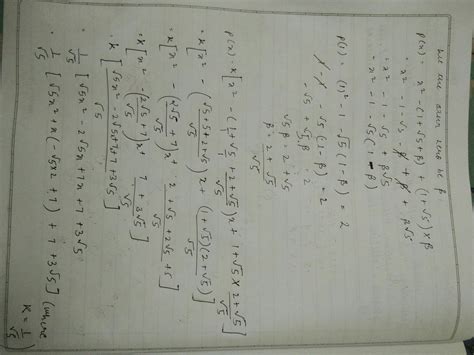 Let the other zero be β
p(x) = x² - (1+√5+β) + (1+√5) × β
= x² - 1 - √5 - β + β + β√5
= x² - 1 - √5 + β√5
= x² - 1 - √5 (1-β)
p(1) = (1)² - 1 - √5 (1-β) = 2
1 - 1 - √5 (1-β) = 2
-√5 + √5β = 2
√5β = 2+√5
β = 2+√5/√5
p(x) = k[x² - (1+√5 + 2+√5/√5)x + 1+√5 × 2+√5/√5]
= k[x² - (√5+5+2+√5/√5)x + (1+√5)(2+√5)/√5]
= k[x² - (2√5+7/√5)x + 2+√5+2√5+5/√5]
= k[x² - (2√5+7/√5)x + 7+3√5/√5]
= k[√5x² - 2√5+7+7+3√5/√5]
= 1/√5 [√5x² - 2√5x + 7x + 7+3√5]
= 1/√5 [√5x² + x(-√5×2+7) + 7+3√5] (where K = 1/√5)